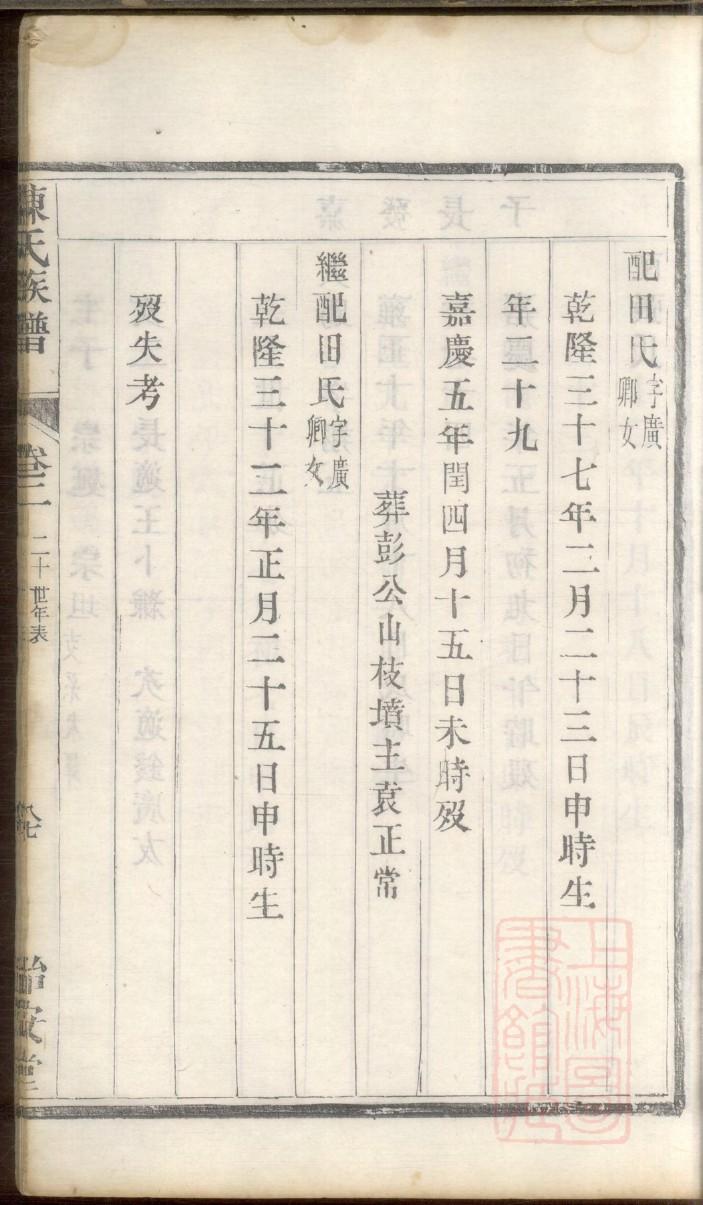 配田氏字廣卿女
乾隆三十七年二月二十三日申時生
年二十九
嘉慶五年閏四月十五日未時歿
葬彭公山枝墳主袁正常
繼配田氏字廣卿女
乾隆三十二年正月二十五日申時生
歿失考
陳氏族譜
卷二
二十世年表
上海圖書館藏